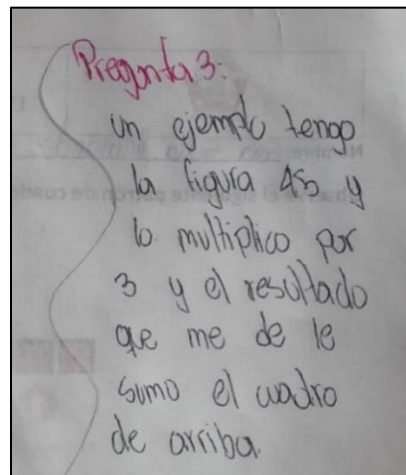 Pregunta 3:
un ejemplo tengo
la figura 45 y
lo multiplico por
3 y el resultado
que me de le
sumo el cuadro
de arriba.